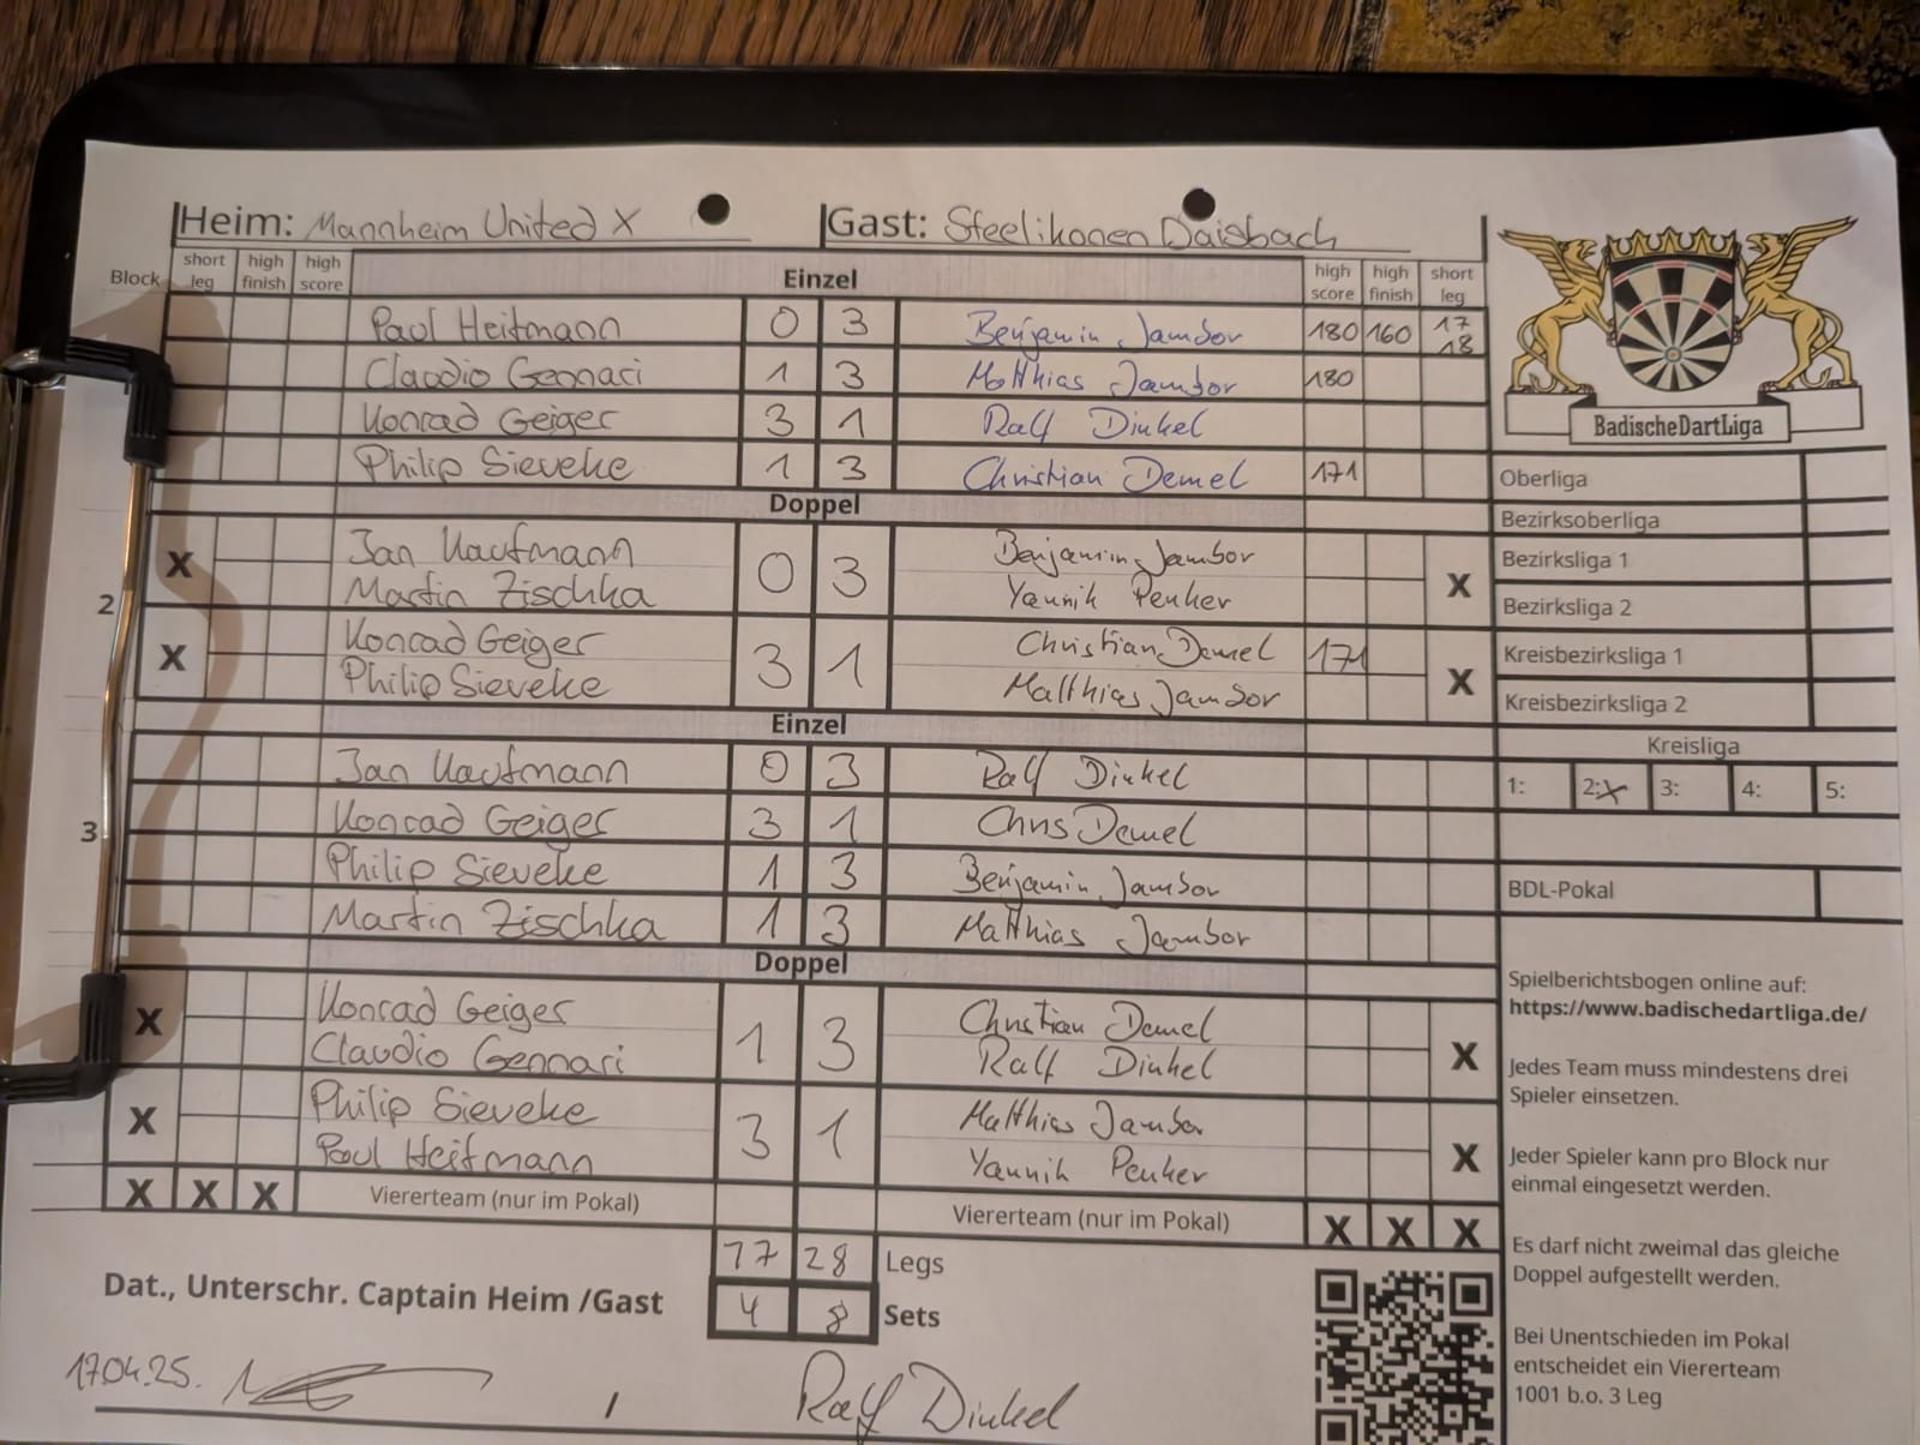 Heim: Mannheim United X
Gast: Steelikonen Daisbach
Block short leg high finish high score Einzel high score high finish short leg
Paul Heitmann 0 3 Benjamin Jambor 180 160 17 18
Claudio Gennari 1 3 Matthias Jambor 180
Konrad Geiger 3 1 Ralf Dinkel
Philip Sieveke 1 3 Christian Demel 171
Doppel
2
X Jan Kaufmann 0 3 Benjamin Jambor X
Martin Zischka Yannik Penker
X Konrad Geiger 3 1 Christian Demel 171 X
Philip Sieveke Matthias Jambor
Einzel
3
Jan Kaufmann 0 3 Ralf Dinkel
Konrad Geiger 3 1 Chris Demel
Philip Sieveke 1 3 Benjamin Jambor
Martin Zischka 1 3 Matthias Jambor
Doppel
X Konrad Geiger 1 3 Christian Demel X
Claudio Gennari Ralf Dinkel
X Philip Sieveke 3 1 Matthias Jambor X
Paul Heitmann Yannik Penker
X X X Viererteam (nur im Pokal) Viererteam (nur im Pokal) X X X
17 28 Legs
4 8 Sets
Dat., Unterschr. Captain Heim /Gast
17.04.25. / Ralf Dinkel
BadischeDartLiga
Oberliga
Bezirksoberliga
Bezirksliga 1
Bezirksliga 2
Kreisbezirksliga 1
Kreisbezirksliga 2
Kreisliga
1: 2: X 3: 4: 5:
BDL-Pokal
Spielberichtsbogen online auf:
https://www.badischedartliga.de/
Jedes Team muss mindestens drei
Spieler einsetzen.
Jeder Spieler kann pro Block nur
einmal eingesetzt werden.
Es darf nicht zweimal das gleiche
Doppel aufgestellt werden.
Bei Unentschieden im Pokal
entscheidet ein Viererteam
1001 b.o. 3 Leg